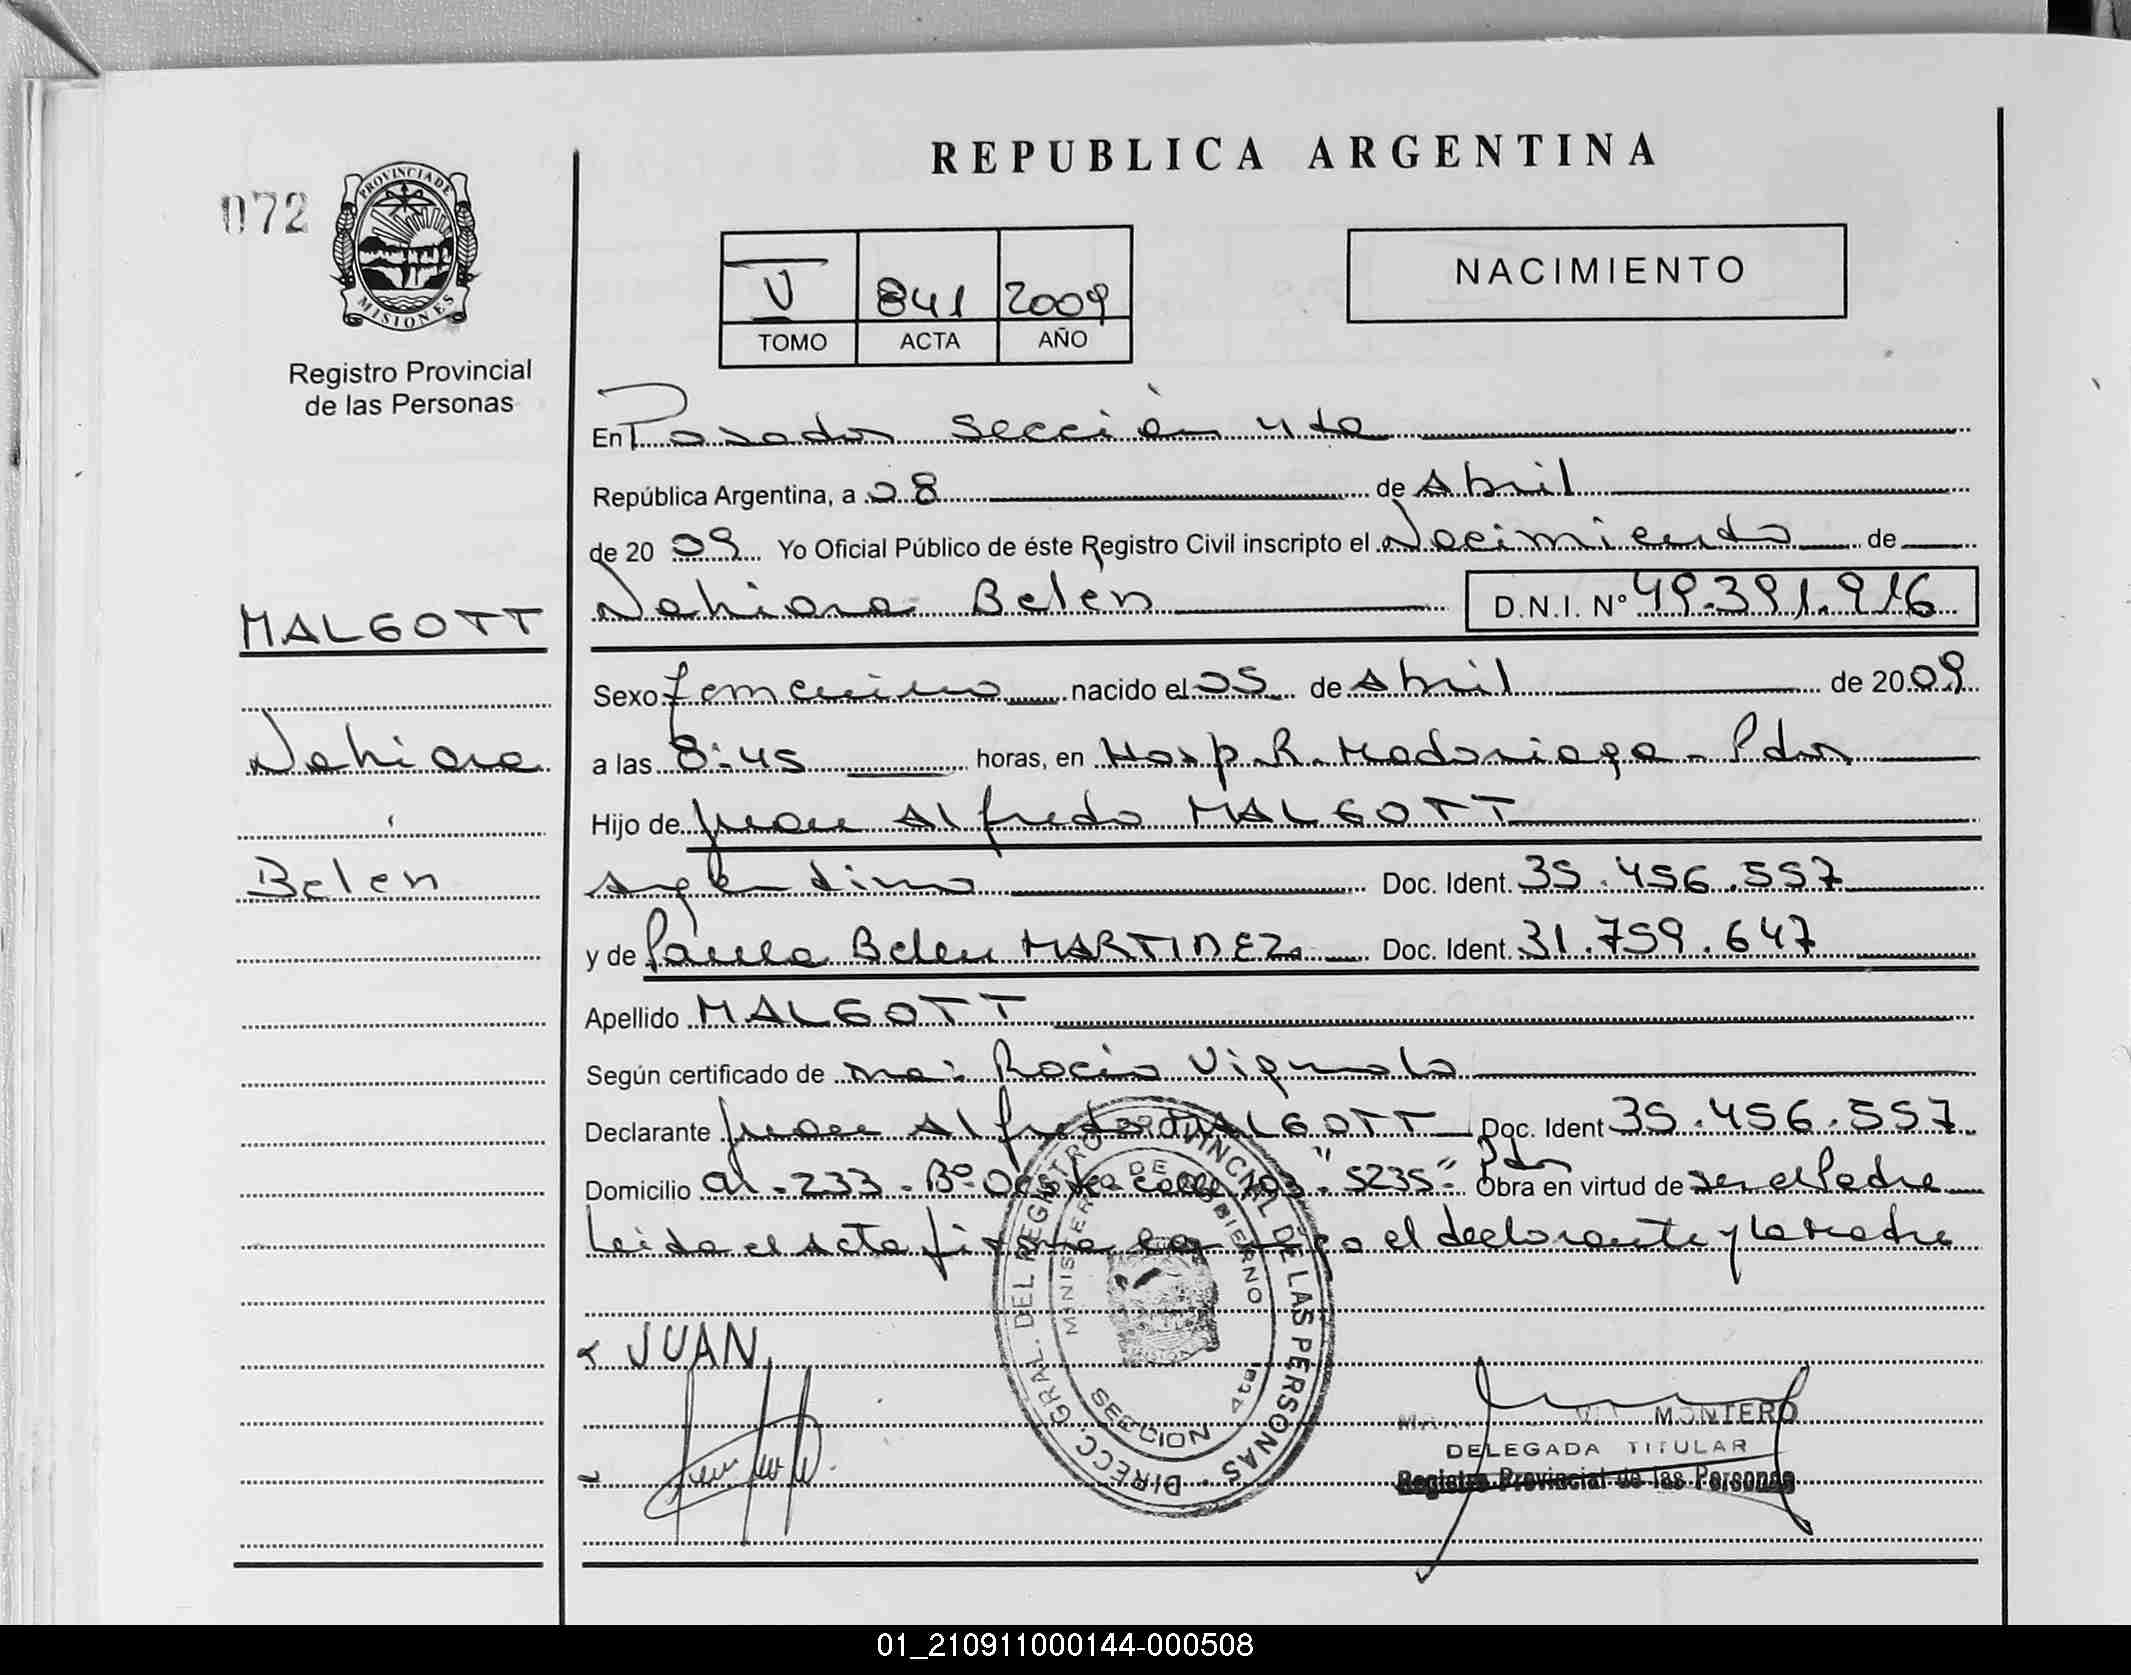 REPUBLICA ARGENTINA
072
PROVINCIA DE
MISIONES
Registro Provincial
de las Personas
V 841 2009
TOMO ACTA AÑO
NACIMIENTO
En Posadas sección 4ta
República Argentina, a 08 de Abril
de 20 09 Yo Oficial Público de éste Registro Civil inscripto el Nacimiento de
Nahiara Belén D.N.I. Nº 49.391.916
MALGOTT
Nahiara
Belén
Sexo femenino nacido el 05 de Abril de 20 09
a las 8:45 horas, en Hosp. R. Madariaga - Pdas
Hijo de Juan Alfredo MALGOTT
argentino Doc. Ident. 35.456.557
y de Paula Belen MARTINEZ Doc. Ident. 31.759.647
Apellido MALGOTT
Según certificado de ma: Rocío Vignola
Declarante Juan Alfredo MALGOTT Doc. Ident 35.456.557
Domicilio 233 - Bº calle 103 "5235" Pdas Obra en virtud de ser el Padre
Leida el acta firma el declarante y la madre
DIRECC. GRAL. DEL REGISTRO PROVINCIAL DE LAS PERSONAS
MINISTERIO DE GOBIERNO
SECCION 4ta.
JUAN
MONTERO
DELEGADA TITULAR
Registro Provincial de las Personas
01_210911000144-000508